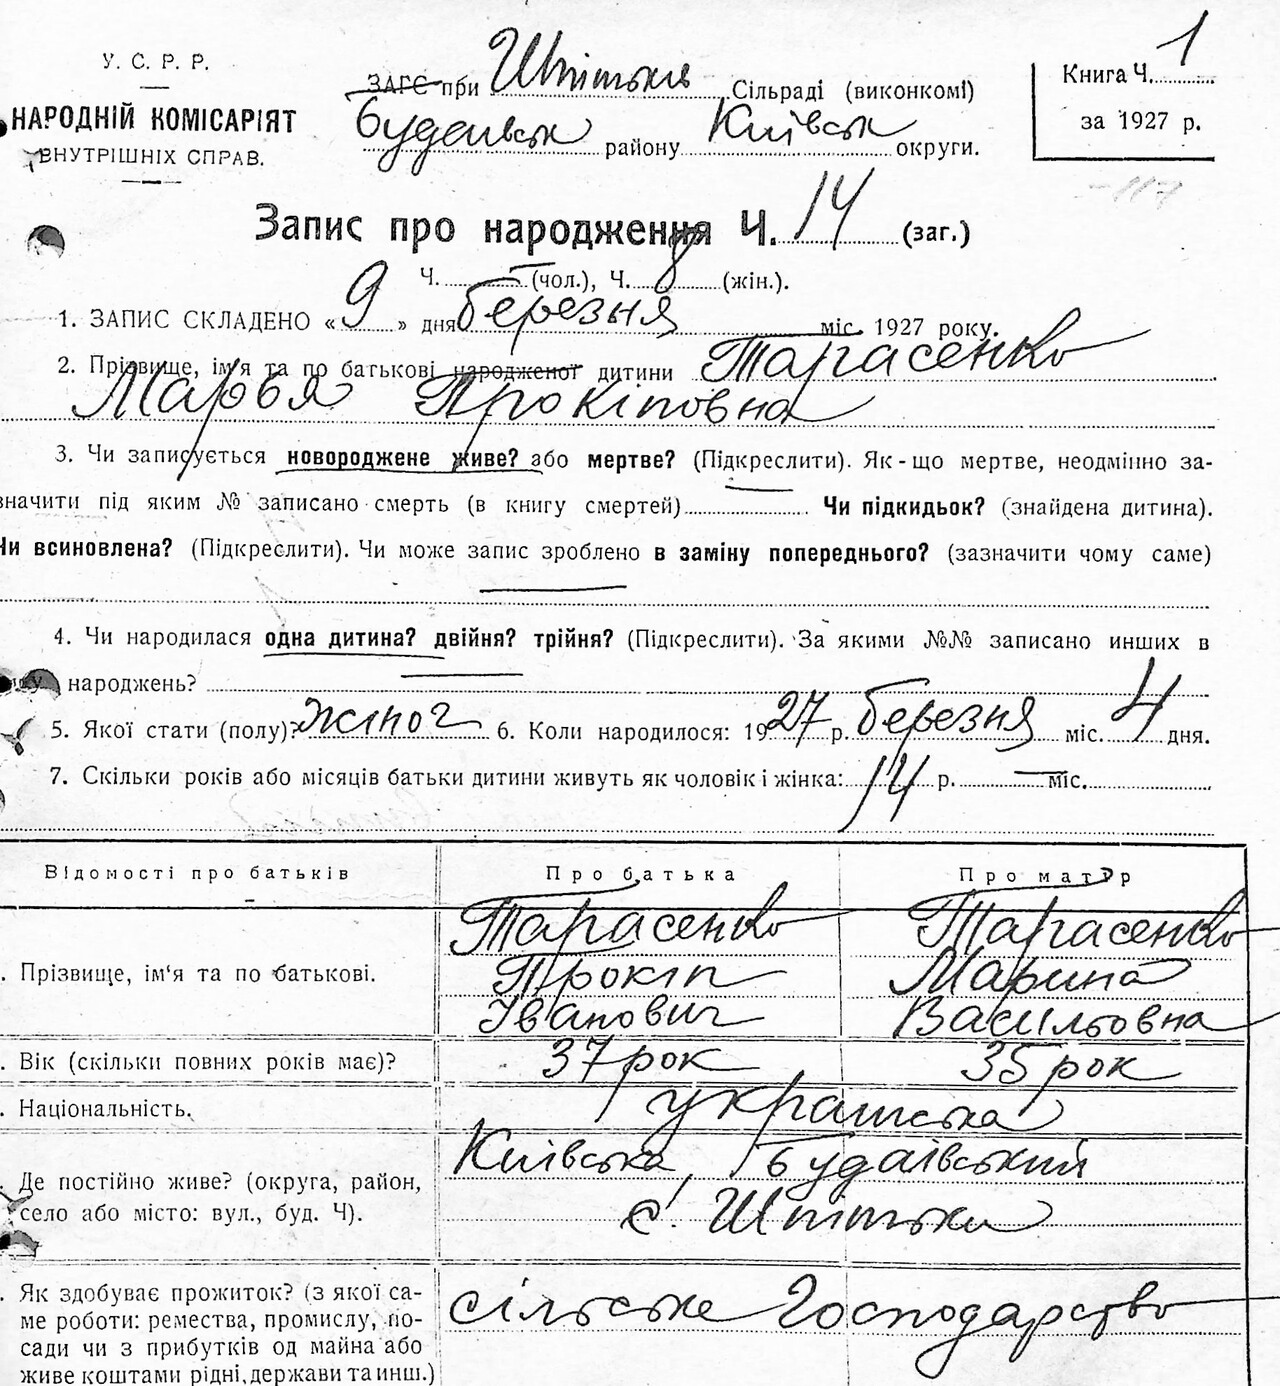 У. С. Р. Р.
НАРОДНІЙ КОМІСАРІЯТ
ВНУТРІШНІХ СПРАВ.
ЗАГС при Шпітьки Сільраді (виконкомі)
Будаївськ району Київськ округи.
Книга Ч. 1
за 1927 р.
Запис про народження Ч. 14 (заг.)
Ч. – (чол.), Ч. 8 (жін.).
1. ЗАПИС СКЛАДЕНО «9» дня березня міс. 1927 року.
2. Прізвище, ім'я та по батькові народженої дитини Тарасенко
Марья Прокіповна
3. Чи записується новороджене живе? або мертве? (Підкреслити). Як-що мертве, неодмінно за-
значити під яким № записано смерть (в книгу смертей) Чи підкидьок? (знайдена дитина).
Чи всиновлена? (Підкреслити). Чи може запис зроблено в заміну попереднього? (зазначити чому саме)
4. Чи народилася одна дитина? двійня? трійня? (Підкреслити). За якими №№ записано инших в
народжень?
5. Якої стати (полу)? жіноч 6. Коли народилося: 1927 р. березня міс. 4 дня.
7. Скільки років або місяців батьки дитини живуть як чоловік і жінка: 14 р. — міс.
Відомості про батьків Про батька Про матір
. Прізвище, ім'я та по батькові. Тарасенко Прокіп Іванович Тарасенко Марина Васильовна
. Вік (скільки повних років має)? 37 рок 35 рок
. Національність. українська
Де постійно живе? (округа, район, Київська, Будаївський
село або місто: вул., буд. Ч). с. Шпітьки
. Як здобуває прожиток? (з якої са- сільське Господарство
ме роботи: ремества, промислу, по-
сади чи з прибутків од майна або
живе коштами рідні, держави та инш.)